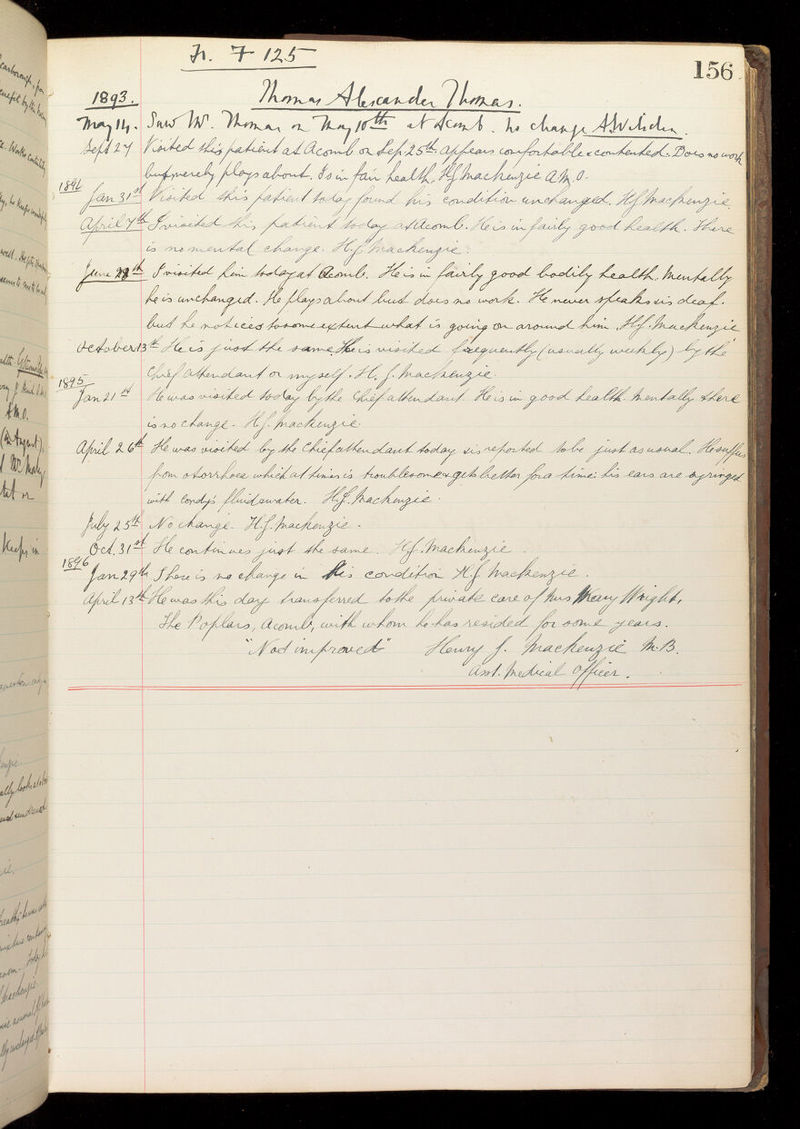 Fr. F 125
156
1893.
Thomas Alexander Thomas.
May 14. Saw Mr. Thomas on May 10th at Acomb. No change
Sept 27 Visited this patient at Acomb on Sep. 25th. Appears comfortable & contented. Does no work
but merely plays about. Is in fair health. H.J. Mackenzie A.M.O.
1894
Jan 31st Visited this patient today found his condition unchanged. H.J. Mackenzie.
April 7th I visited this patient today at Acomb. He is in fairly good health. There
is no mental change. H.J. Mackenzie.
June 28th I visited him today at Acomb. He is in fairly good bodily health. Mentally
he is unchanged. He plays about but does no work. He never speaks & is deaf.
but he notices to some extent what is going on around him. H.J. Mackenzie
October 13th He is just the same. He is visited frequently (usually weekly) by the
Chief attendant or myself. H. J. Mackenzie.
1895
Jan 21st He was visited today by the Chief attendant. He is in good health. Mentally there
is no change. H.J. Mackenzie.
April 26th He was visited by the Chief attendant today & is reported to be just as usual. He suffers
from otorrhoea which at times is troublesome & gets better for a time: his ears are syringed
with Condy's fluid & water. H.J. Mackenzie.
July 25th No change. H.J. Mackenzie.
Oct. 31st He continues just the same. H.J. Mackenzie.
1896
Jan 29th There is no change in his condition H.J. Mackenzie.
April 13th He was this day transferred to the private care of Mrs Mary Wright,
The Poplars, Acomb, with whom he has resided for some years.
"Not improved" Henry J. Mackenzie M.B.
Asst. Medical Officer.